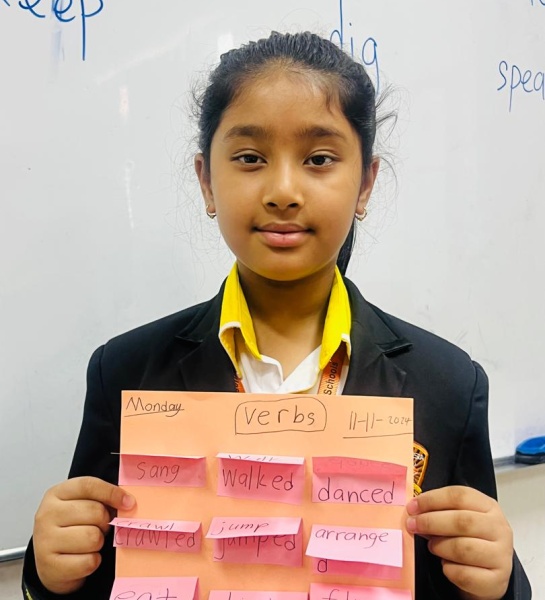 eep
dig
spea
Schools
Monday
Verbs
11-11-2024
sang
walked
danced
crawl
crawled
jump
jumped
arrange
d
eat